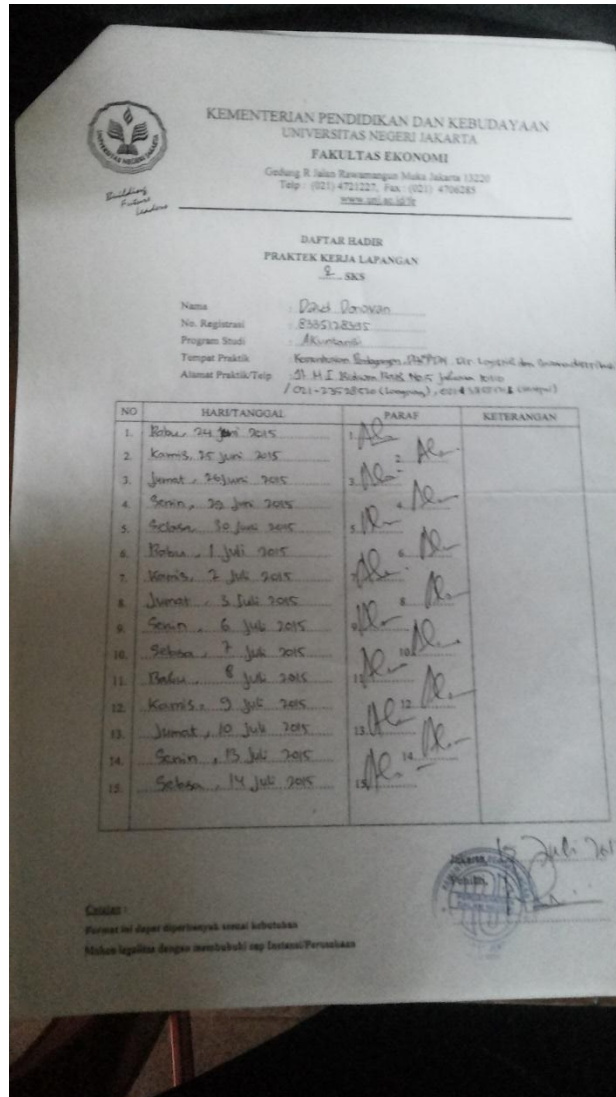 UNIVERSITAS NEGERI JAKARTA
Building
Future
Leaders
KEMENTERIAN PENDIDIKAN DAN KEBUDAYAAN
UNIVERSITAS NEGERI JAKARTA
FAKULTAS EKONOMI
Gedung R Jalan Rawamangun Muka Jakarta 13220
Telp : (021) 4721227, Fax : (021) 4706285
www.unj.ac.id/fe
DAFTAR HADIR
PRAKTEK KERJA LAPANGAN
2 SKS
Nama : David Donovan
No. Registrasi : 8335128395
Program Studi : Akuntansi
Tempat Praktik : Kementerian Perdagangan, Dir Logistik dan
Alamat Praktik/Telp : Jl. M.I. Ridwan Rais No.5
/ 021-23528520
NO HARI/TANGGAL PARAF KETERANGAN
1. Rabu, 24 Juni 2015 1.
2. Kamis, 25 Juni 2015 2.
3. Jumat, 26 Juni 2015 3.
4. Senin, 29 Juni 2015 4.
5. Selasa, 30 Juni 2015 5.
6. Rabu, 1 Juli 2015 6.
7. Kamis, 2 Juli 2015 7.
8. Jumat, 3 Juli 2015 8.
9. Senin, 6 Juli 2015 9.
10. Selasa, 7 Juli 2015 10.
11. Rabu, 8 Juli 2015 11.
12. Kamis, 9 Juli 2015 12.
13. Jumat, 10 Juli 2015 13.
14. Senin, 13 Juli 2015 14.
15. Selasa, 14 Juli 2015 15.
Jakarta, 15 Juli 201
Penilai,
Catatan :
Format ini dapat diperbanyak sesuai kebutuhan
Mohon legalitas dengan membubuhi cap Instansi/Perusahaan